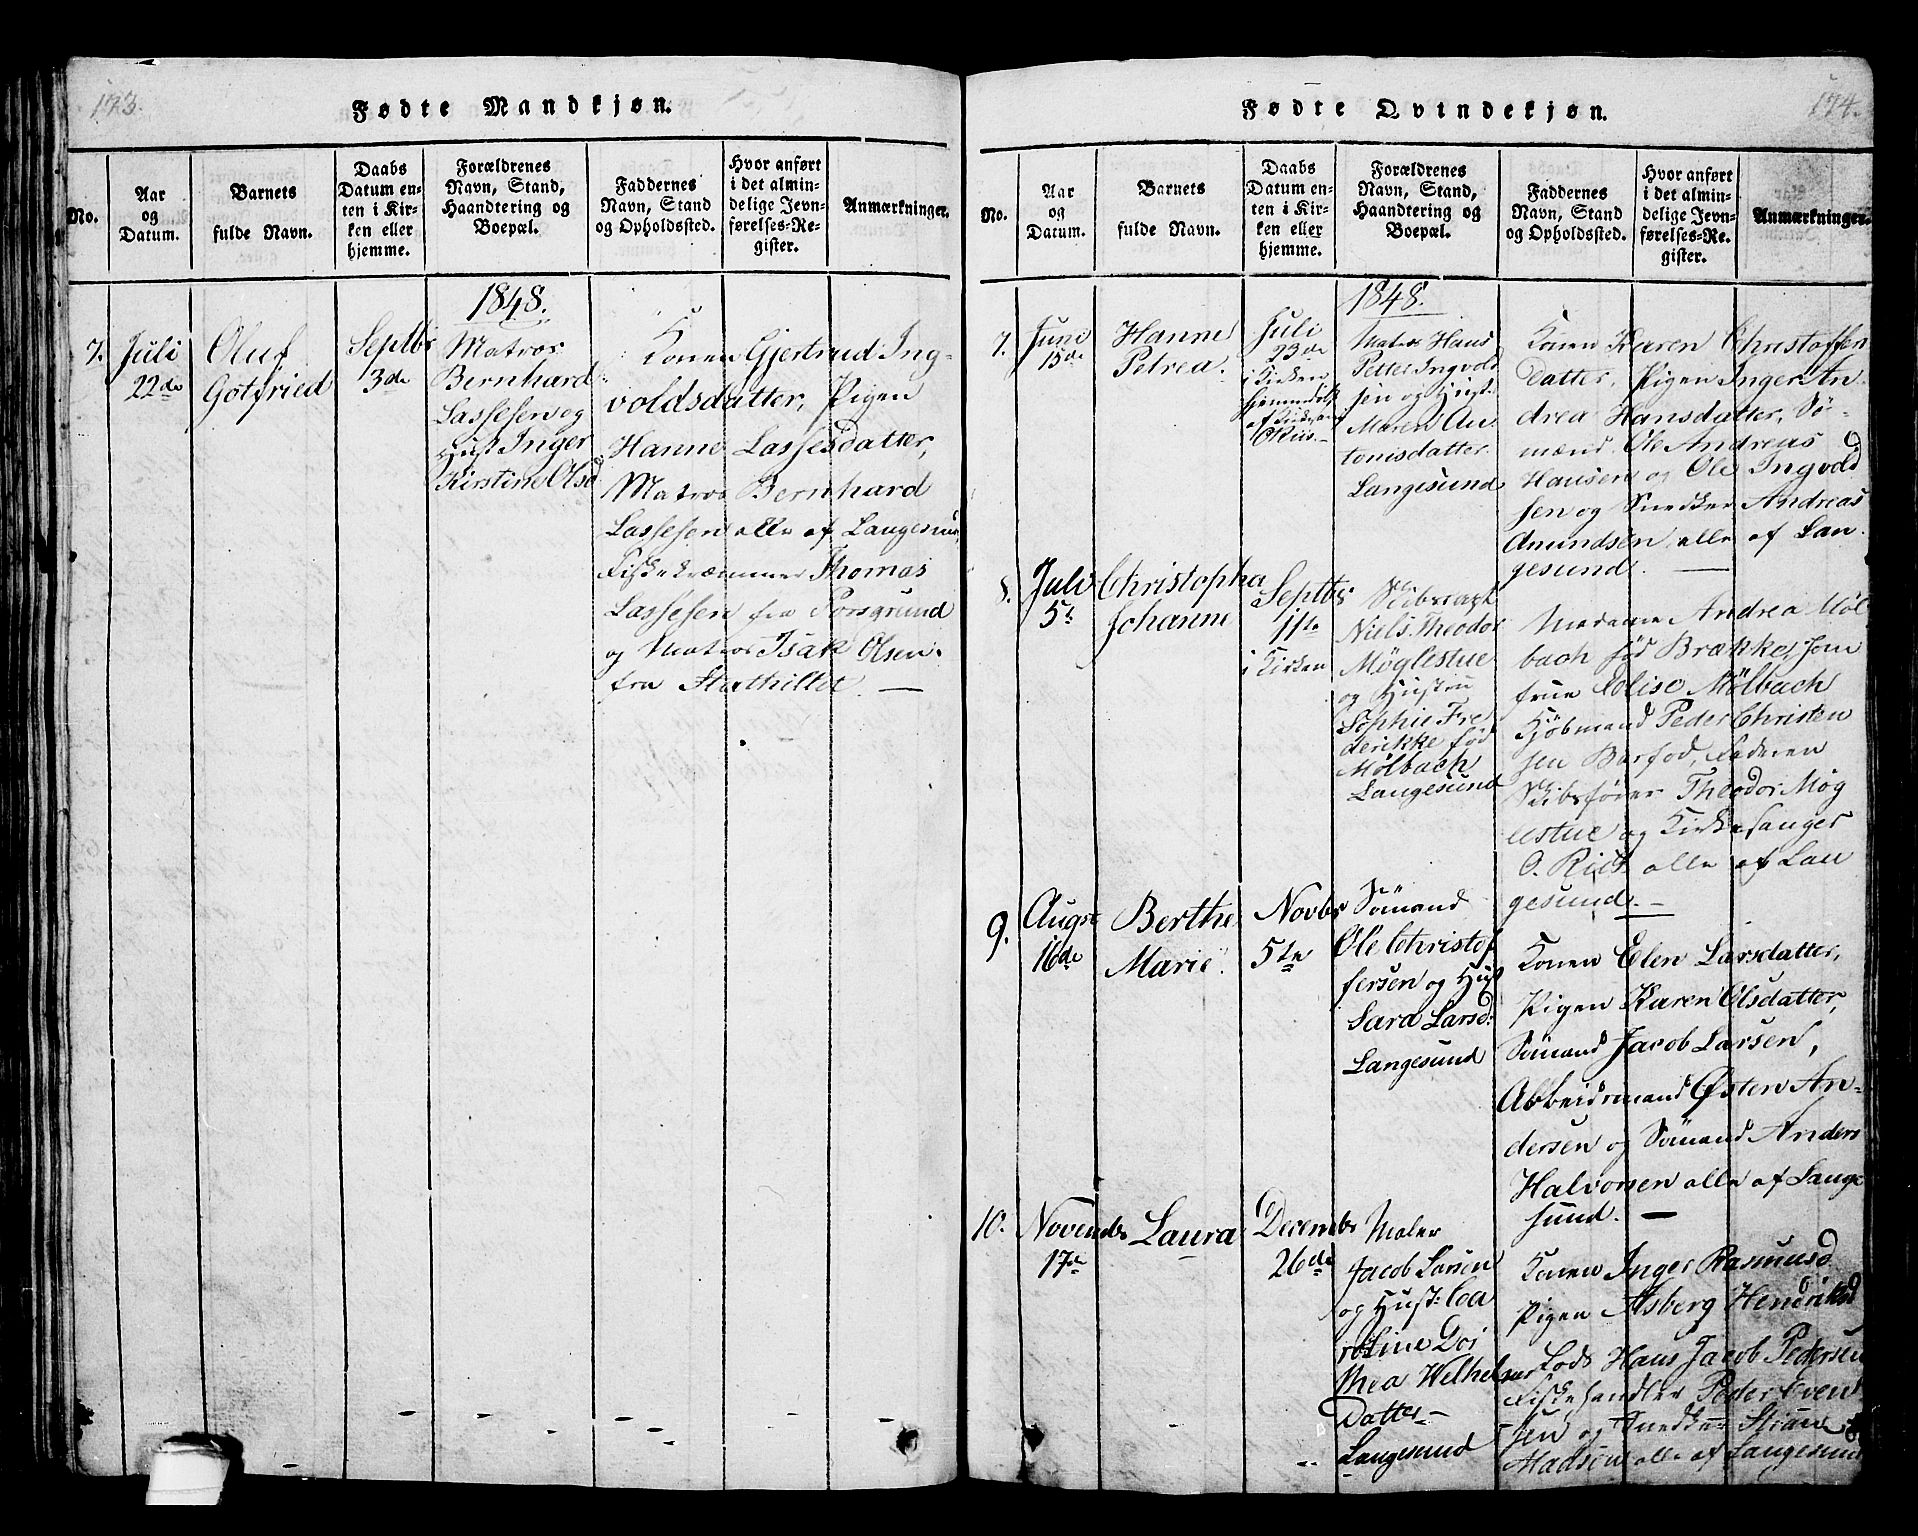 173.
Fødte Mandkjøn.
No.
Aar
og
Datum.
Barnets
fulde Navn.
Daabs
Datum en-
ten i Kir-
ken eller
hjemme.
Forældrenes
Navn, Stand,
Haandtering og
Boepæl.
Faddernes
Navn, Stand
og Opholdssted.
Hvor anført
i det almin-
delige Jevn-
førelses-Re-
gister.
Anmærkninger.
1848.
7.
Juli
22de
Oluf
Gotfried
Septbr
3de
Matros
Bernhard
Lassesen og
Hust Inger
Kirstine Olsd
Konen Gjertrud Ing-
voldsdatter, Pigen
Hanne Lassesdatter,
Matros Bernhard
Lassesen alle af Langesund,
Fiskekræmmer Thomas
Lassesen fra Porsgrund
og Matros Isak Olsen
fra Stathillet. —
174.
Fødte Qvindekjøn.
No.
Aar
og
Datum.
Barnets
fulde Navn.
Daabs
Datum en-
ten i Kir-
ken eller
hjemme.
Forældrenes
Navn, Stand,
Haandtering og
Boepæl.
Faddernes
Navn, Stand
og Opholdssted.
Hvor anført
i det almin-
delige Jevn-
førelses-Re-
gister.
Anmærkninger.
1848.
7.
Juni
15de
Hanne
Petrea.
Juli
23de
i Kirken
hjemmedøbt
af Kirkesan
O Riis.—
Matros Hans
Petter Ingvold
sen og Hust.
Maren An
tonisdatter
Langesund
Konen Karen Christoffer
datter, Pigen Inger An
drea Hansdatter, Sö-
mænd. Ole Andreas
Hansen og Ole Ingvold
sen og Snedker Andreas
Amundsen, alle af Lan
gesund. —
8.
Juli
5te
Christopha
Johanne
Septbr
11te
i Kirken
Skibscapt
Niels Theodor
Møglestue
og Hustru
Sophie Fre
derikke fød
Mölbach
Langesund
Madame Andrea Möl
bach fød Brække, Jom
frue Elise Mölbach
Kjöbmand Peder Christen
sen Barfod, Faderen
Skibsfører Theodor Møg
lestue og Kirkesanger
O. Riis alle af Lan
gesund. —
9.
Augst
16de
Berthe
Marie.
Novbr
5te
Sömand
Ole Christof
fersen og Hust
Sara Larsd:
Langesund
Konen Elen Larsdatter,
Pigen Karen Olsdatter,
Sömand Jacob Larsen,
Arbeidsmand Østen An-
dersen og Sömand Anders
Halvorsen alle af Lange
sund. —
10.
Novembr
17de
Laura
Decembr
26de
Maler
Jacob Larsen
og Hust: Ca
roline Do
thea Wilhelms
Datter—
Langesund
Konen Inger Rasmusd
Pigen Asberg Hendriksd
Lods Hans Jacob Pedersen
Fiskehandler Peder Even
sen og Snedker Stian
Madsen alle af Langesund